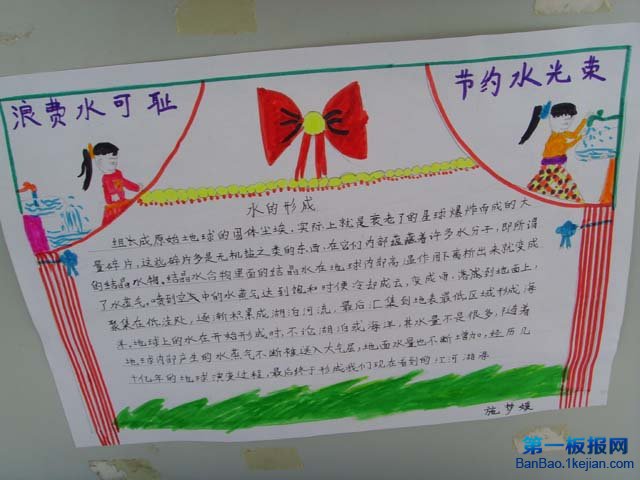 浪费水可耻
节约水光荣
水的形成
组成原始地球的固体尘埃,实际上就是衰老了的星球爆炸而成的大
量碎片,这些碎片多是无机盐之类的东西,在它们内部蕴藏着许多水分子,即所谓
的结晶水物.结晶水合物里面的结晶水在地球内部高温作用下离析出来就变成
了水蒸气.喷到空中的水蒸气达到饱和时便冷却成云,变成雨,落到地面上,
聚集在低洼处,逐渐积累成湖泊河流,最后汇集到地表最低区域形成海
洋.地球上的水在开始形成时,不论湖泊或海洋,其水量不是很多,随着
地球内部产生的水蒸气不断被送入大气层,地面水量也不断增加,经历几
十亿年的地球演变过程,最后终于形成我们现在看到的江河湖海
施梦媛
第一板报网
BanBao.1kejian.com